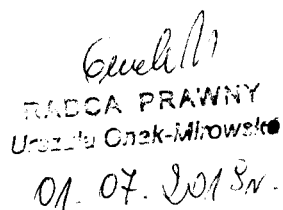 RADCA PRAWNY
Urszula Onak-Mirowska
01. 07. 2019r.